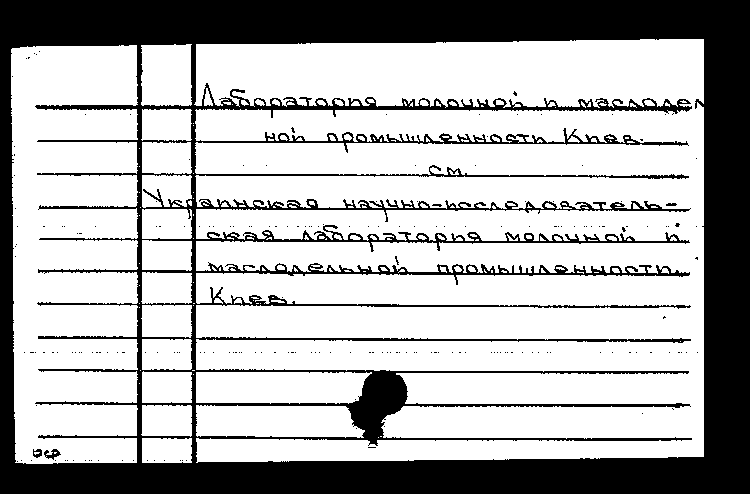 Лаборатория молочной и маслодель
ной промышленности. Киев.
см.
Украинская научно-последователь-
ская лаборатория молочной и
маслодельной промышленности.
Киев.